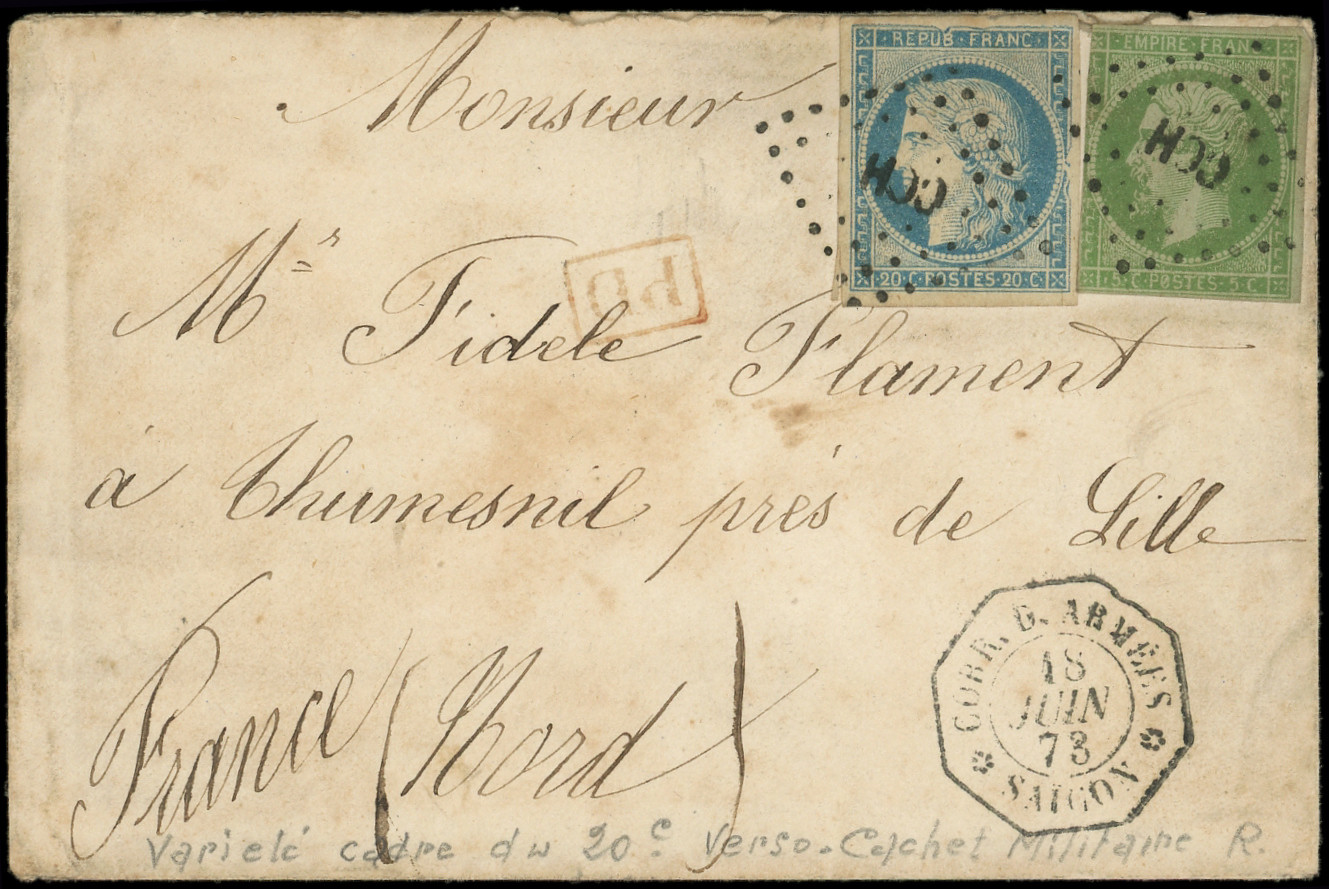 Monsieur
REPUB · FRANC ·
EMPIRE · FRANC
CCH
CCH
· 20 · C · POSTES · 20 · C ·
· 5 · C · POSTES · 5 · C ·
P.D
Mr Fidele Flament
à Thumesnil près de Lille
France (Nord)
CORR. D. ARMÉES
18
JUIN
73
SAIGON
Varieté cadre du 20c verso. Cachet Militaire R.